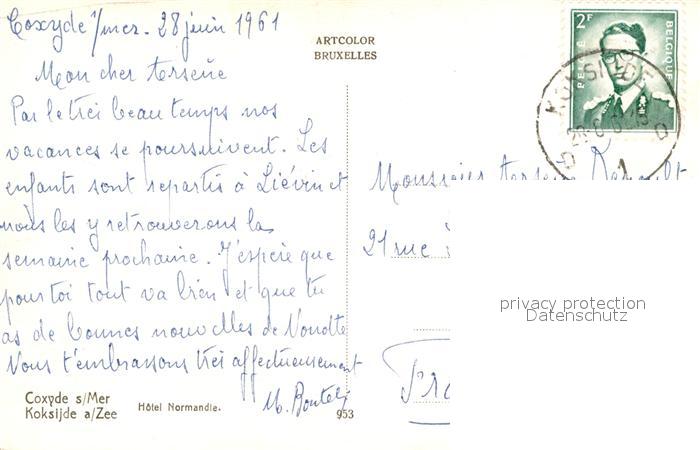 Coxyde s/mer. 28 juin 1961
Mon cher Arsène
Par le très beau temps nos
vacances se poursuivent. Les
enfants sont repartis à Liévin et
nous les y retrouverons la
semaine prochaine. J'espère que
pour toi tout va bien et que tu
as de bonnes nouvelles de
Nous t'embrassons très affectueusement
M.
Coxyde s/Mer
Koksijde a/Zee
Hôtel Normandie.
953
ARTCOLOR
BRUXELLES
2F
BELGIQUE
BELGIE
KOKSIJDE
1
D D
Monsieur Arsène
21 rue
privacy protection
Datenschutz